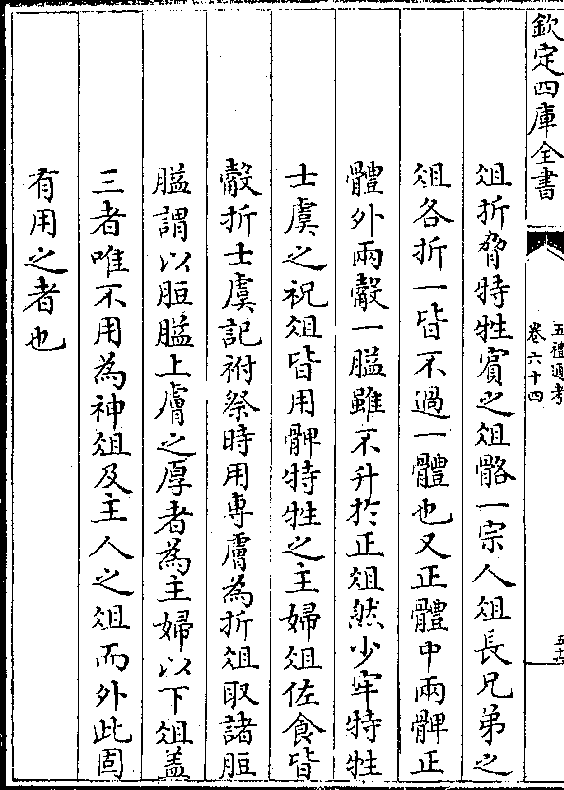 欽定四庫全書
五禮通考
卷六十四
俎折脅特牲賓之俎骼一宗人俎長兄弟之
俎各折一皆不過一體也又正體中兩髀正
體外兩觳一膉雖不升於正俎然少牢特牲
士虞之祝俎皆用髀特牲之主婦俎佐食皆
觳折士虞記祔祭時用專膚為折俎取諸脰
膉謂以脰膉上膚之厚者為主婦以下俎蓋
三者唯不用為神俎及主人之俎而外此固
有用之者也